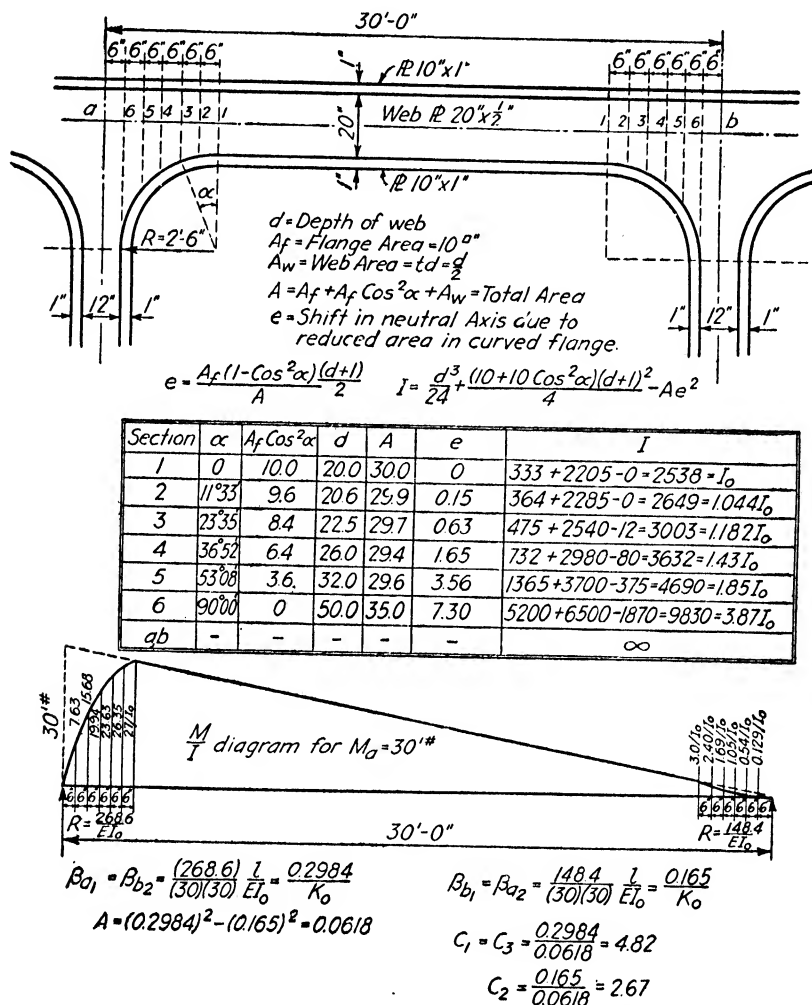 30'-0"
6" 6" 6" 6" 6" 6"
6" 6" 6" 6" 6" 6"
1"
PL 10"x1"
a
6 5 4 3 2 1
20"
Web PL 20"x1/2"
1 2 3 4 5 6
b
1"
PL 10"x1"
α
R=2'-6"
d=Depth of web
Af=Flange Area=10□"
Aw=Web Area=td=d/2
A=Af+Af Cos²α+Aw=Total Area
e=Shift in neutral Axis due to
reduced area in curved flange.
1" 12" 1"
1" 12" 1"
e=Af(1-Cos²α)/A (d+1)/2 I=d³/24+(10+10 Cos²α)(d+1)²/4-Ae²
Section α Af Cos²α d A e I
1 0 10.0 20.0 30.0 0 333+2205-0=2538=I₀
2 11°33' 9.6 20.6 29.9 0.15 364+2285-0=2649=1.044I₀
3 23°35' 8.4 22.5 29.7 0.63 475+2540-12=3003=1.182I₀
4 36°52' 6.4 26.0 29.4 1.65 732+2980-80=3632=1.43I₀
5 53°08' 3.6 32.0 29.6 3.56 1365+3700-375=4690=1.85I₀
6 90°00' 0 50.0 35.0 7.30 5200+6500-1870=9830=3.87I₀
ab - - - - - ∞
30'#
7.63
15.68
19.94
23.63
26.35
27/I₀
M/I diagram for Ma=30'#
3.0/I₀
2.40/I₀
1.69/I₀
1.05/I₀
0.54/I₀
0.129/I₀
6" 6" 6" 6" 6" 6"
6" 6" 6" 6" 6" 6"
R=268.6/EI₀
30'-0"
R=148.4/EI₀
βa₁=βb₂=(268.6)/(30)(30) l/EI₀=0.2984/K₀
βb₁=βa₂=148.4/(30)(30) l/EI₀=0.165/K₀
A=(0.2984)²-(0.165)²=0.0618
C₁=C₃=0.2984/0.0618=4.82
C₂=0.165/0.0618=2.67